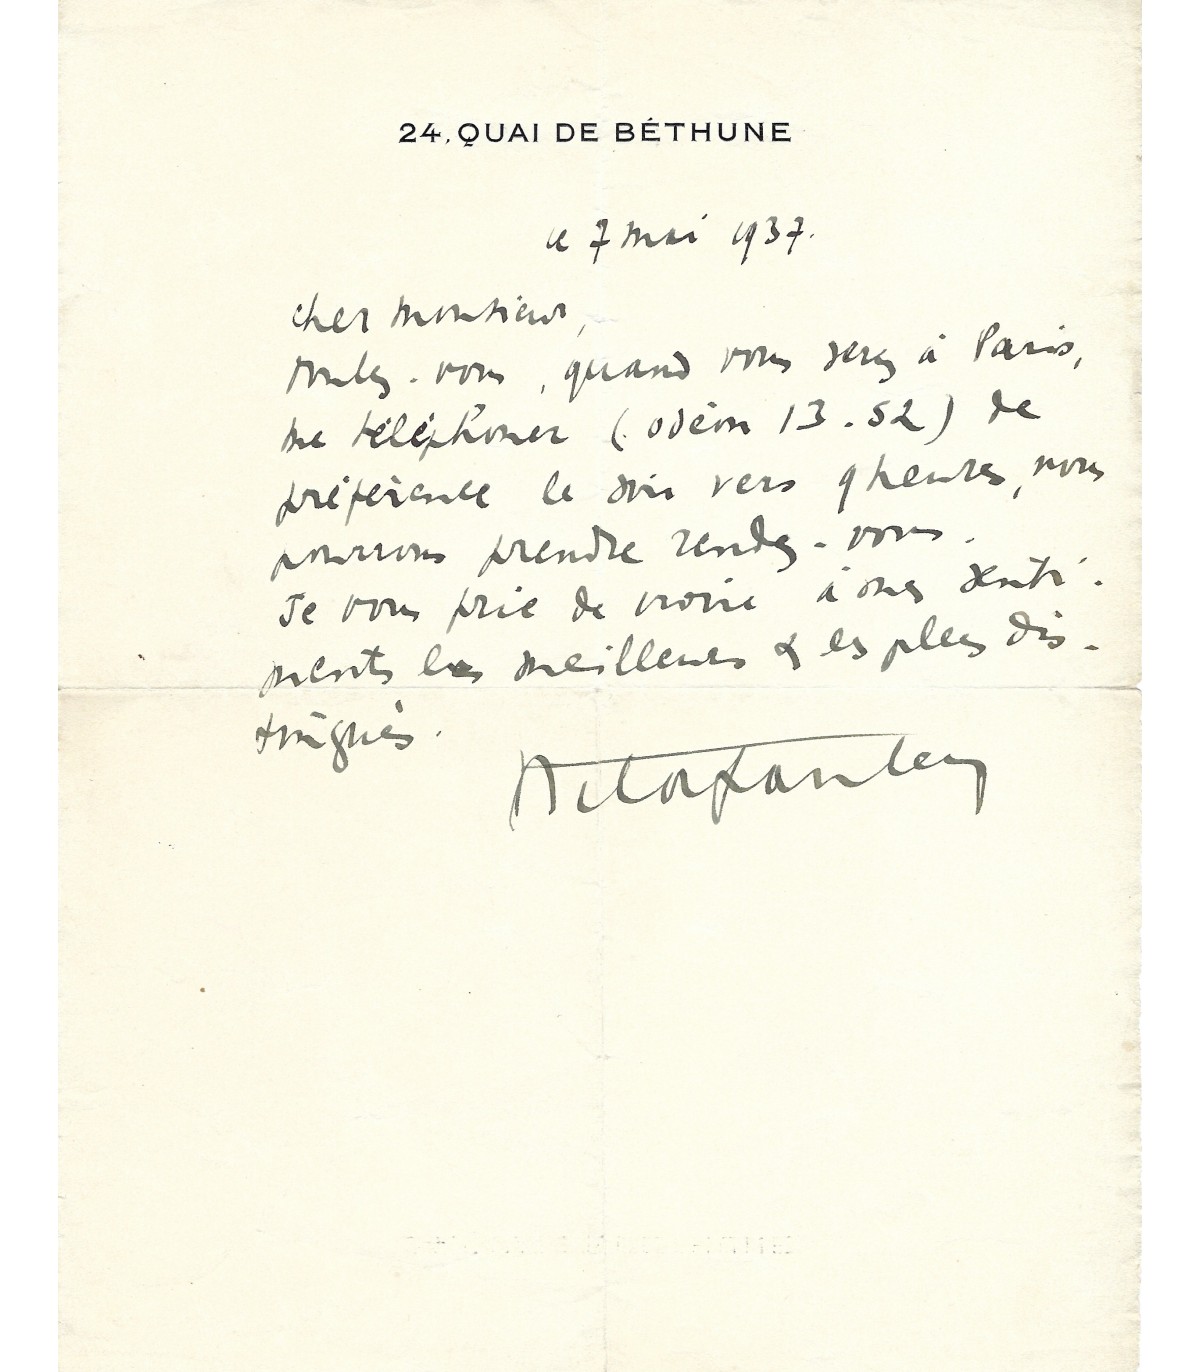 24, QUAI DE BÉTHUNE
le 7 mai 1937.
Cher Monsieur,
voulez-vous, quand vous serez à Paris,
me téléphoner (odéon 13.52) de
préférence le soir vers 9 heures, nous
pourrons prendre rendez-vous.
Je vous prie de croire à mes senti-
ments les meilleurs & les plus dis-
tingués.